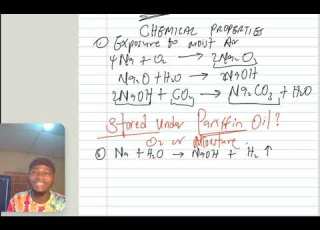 CHEMICAL PROPERTIES
① Exposure to moist Air
4Na + O₂ → 2Na₂O
Na₂O + H₂O → 2NaOH
2NaOH + CO₂ → Na₂CO₃ + H₂O
Stored under Paraffin Oil?
O₂ or Moisture.
② Na + H₂O → NaOH + H₂ ↑